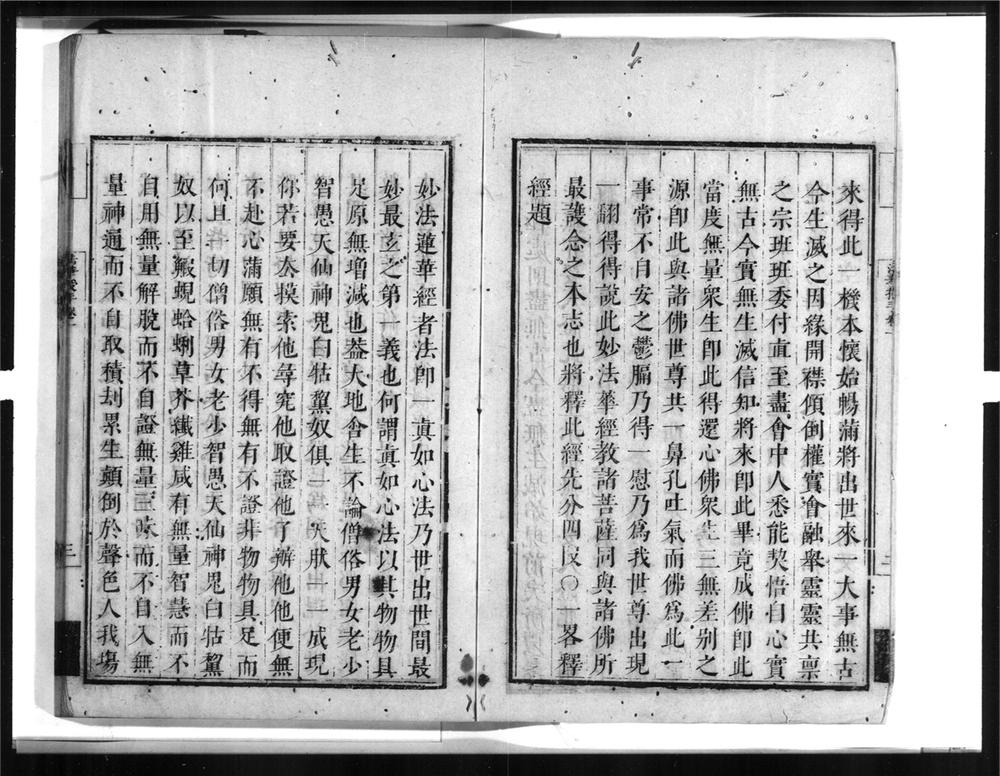 來得此一機本懷始暢蒲將出世來一大事無古
今生滅之因緣開襟傾倒權實會融舉靈靈共禀
之宗班班委付直至盡會中人悉能契悟自心實
無古今實無生滅信知將來即此畢竟成佛即此
當度無量衆生即此得還心佛衆生三無差别之
源即此與諸佛世尊共一鼻孔吐氣而佛爲此一
事常不自安之鬱膈乃得一慰乃爲我世尊出現
一翻得得說此妙法華經教諸菩薩同與諸佛所
最護念之本志也將釋此經先分四段〇一畧釋
經題
妙法蓮華經者法即一真如心法乃世出世間最
妙最玄之第一義也何謂真如心法以其物物具
足原無增減也葢大地含生不論僧俗男女老少
智愚天仙神鬼白牯黧奴俱一天肰一一成現
你若要去摸索他尋究他取證他了辨他他便無
不赴心蒲願無有不得無有不證非物物具足而
何且一切僧俗男女老少智愚天仙神鬼白牯黧
奴以至鰕蜆蛤蜊草芥纖雞咸有無量智慧而不
自用無量解脫而不自證無量三昧而不自入無
量神通而不自取積刧累生顛倒於聲色人我塲
二
三